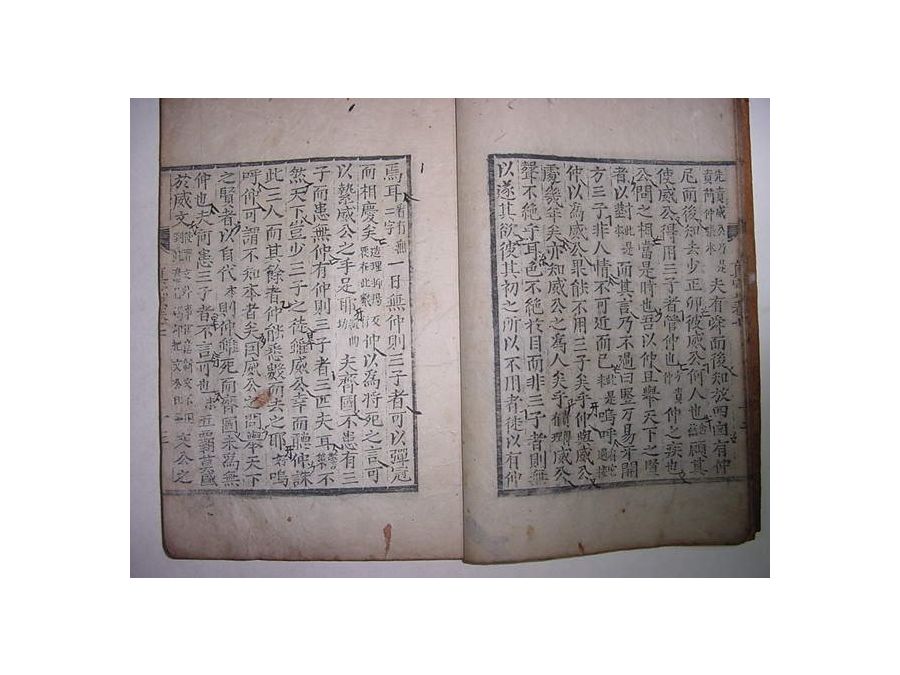 夫有舜而後知放四凶有仲
尼而後知去少正卯彼威公何人也顧其
使威公得用三子者管仲也仲之疾也
公問之相當是時也吾以仲且擧天下之賢
者以對而其言乃不過曰竪刁易牙開
方三子非人情不可近而已嗚呼
仲以爲威公果能不用三子矣乎仲與威公
處幾年矣亦知威公之爲人矣乎威公
聲不絶乎耳色不絶於目而非三子者則無
以遂其欲彼其初之所以不用者徒以有仲
焉耳看有無二字一日無仲則三子者可以彈冠
而相慶矣仲以爲將死之言可
以縶威公之手足耶夫齊國不患有三
子而患無仲有仲則三子者三匹夫耳不
然天下豈少三子之徒雖威公幸而聽仲誅
此三人而其餘者仲能悉數而去之耶嗚
呼仲可謂不知本者矣因威公之問擧天下
之賢者以自代則仲雖死而齊國未爲無
仲也夫何患三子者不言可也五覇莫盛
於威文文公之